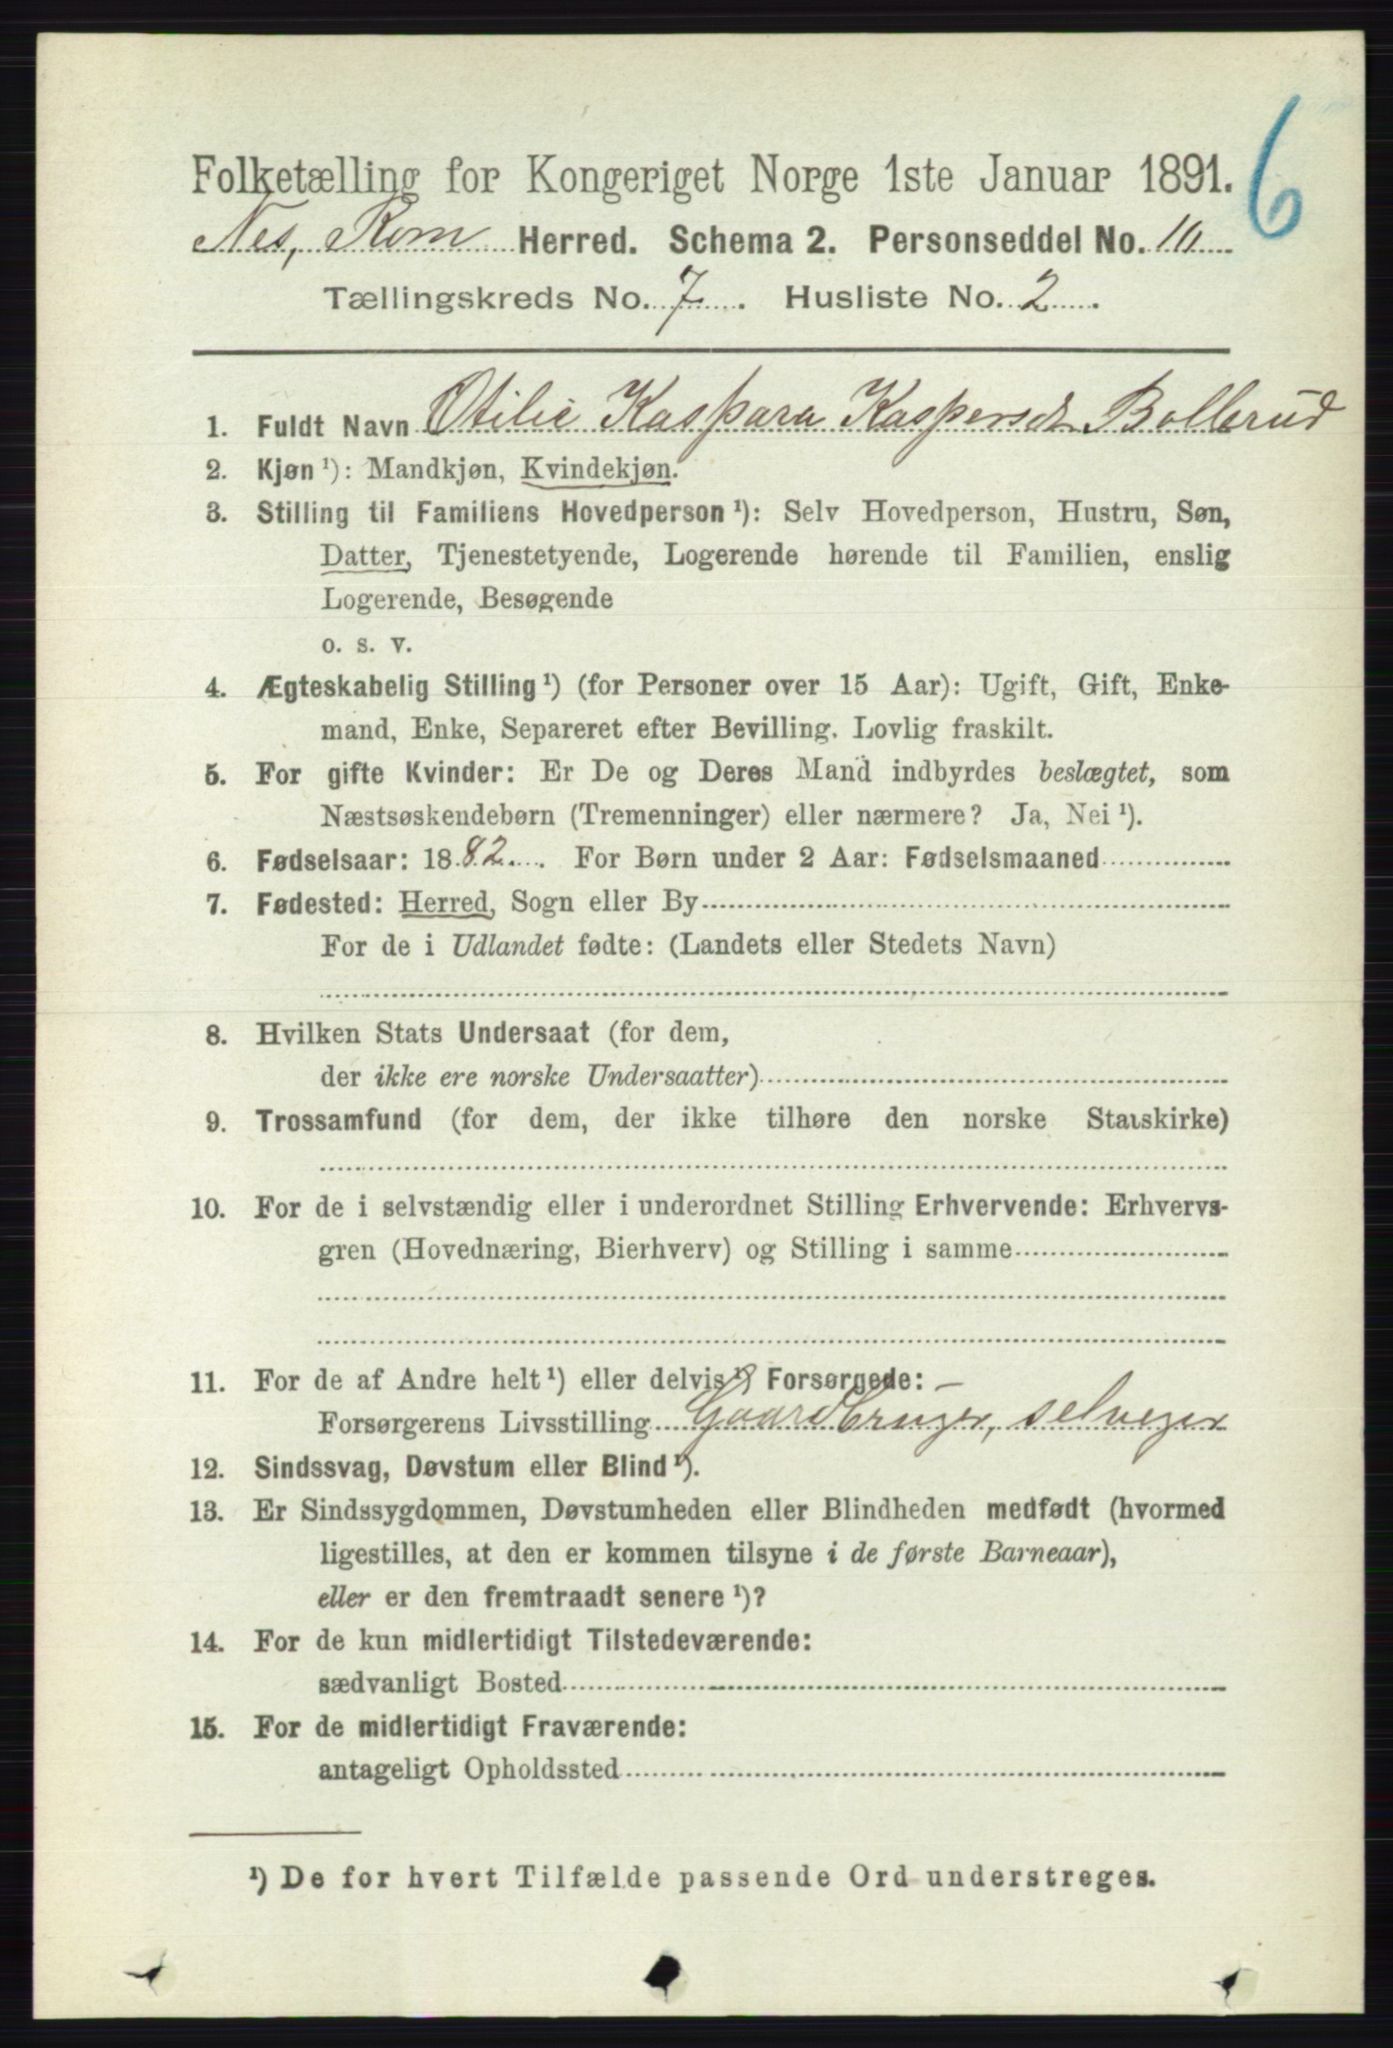 6
Folketælling for Kongeriget Norge 1ste Januar 1891.
Nes, Rom Herred. Schema 2. Personseddel No. 10
Tællingskreds No. 7. Husliste No. 2.
1. Fuldt Navn Otilie Kaspara Kaspersdt Bollerud
2. Kjøn ¹): Mandkjøn, Kvindekjøn.
3. Stilling til Familiens Hovedperson ¹): Selv Hovedperson, Hustru, Søn,
Datter, Tjenestetyende, Logerende hørende til Familien, enslig
Logerende, Besøgende
o. s. v.
4. Ægteskabelig Stilling ¹) (for Personer over 15 Aar): Ugift, Gift, Enke-
mand, Enke, Separeret efter Bevilling. Lovlig fraskilt.
5. For gifte Kvinder: Er De og Deres Mand indbyrdes beslægtet, som
Næstsøskendebørn (Tremenninger) eller nærmere? Ja, Nei ¹).
6. Fødselsaar: 1882. For Børn under 2 Aar: Fødselsmaaned
7. Fødested: Herred, Sogn eller By
For de i Udlandet fødte: (Landets eller Stedets Navn)
8. Hvilken Stats Undersaat (for dem,
der ikke ere norske Undersaatter)
9. Trossamfund (for dem, der ikke tilhøre den norske Statskirke)
10. For de i selvstændig eller i underordnet Stilling Erhvervende: Erhvervs-
gren (Hovednæring, Bierhverv) og Stilling i samme
11. For de af Andre helt ¹) eller delvis ¹) Forsørgede:
Forsørgerens Livsstilling Gaardbruger, selveger
12. Sindssvag, Døvstum eller Blind ¹).
13. Er Sindssygdommen, Døvstumheden eller Blindheden medfødt (hvormed
ligestilles, at den er kommen tilsyne i de første Barneaar),
eller er den fremtraadt senere ¹)?
14. For de kun midlertidigt Tilstedeværende:
sædvanligt Bosted
15. For de midlertidigt Fraværende:
antageligt Opholdssted
¹) De for hvert Tilfælde passende Ord understreges.